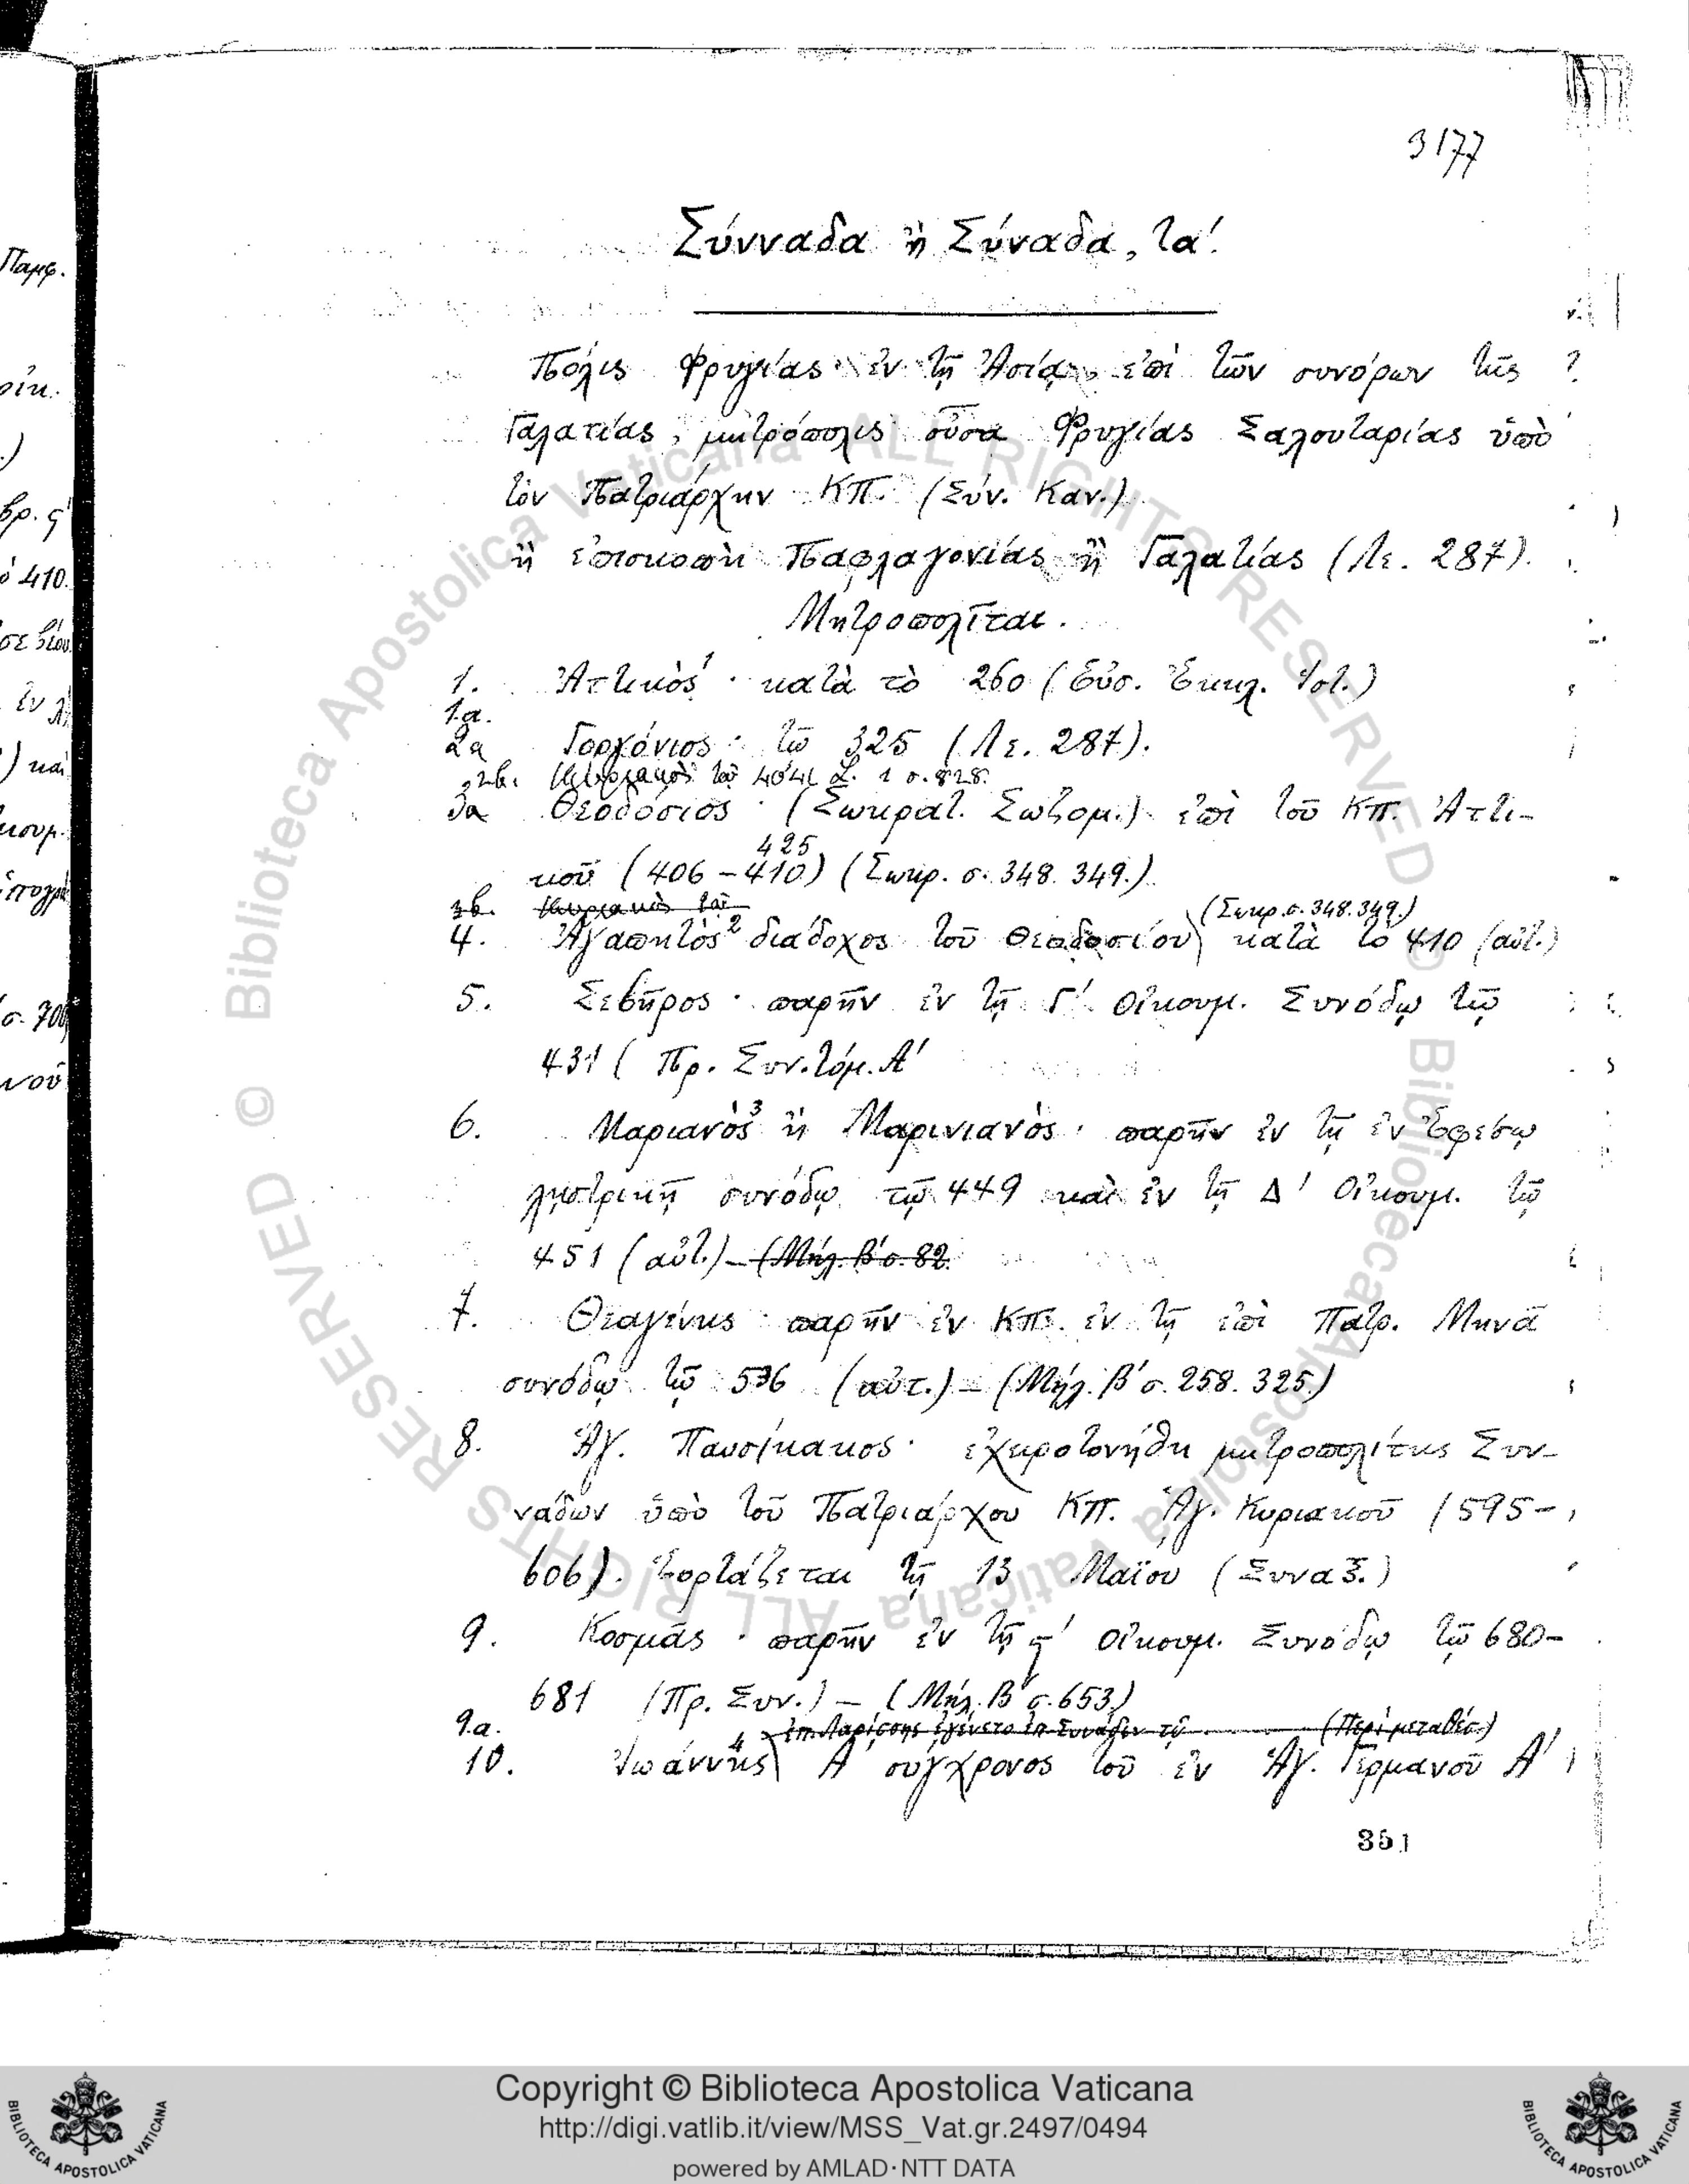 3177
Σύνναδα ἢ Σύναδα, τα'.
Πόλις Φρυγίας ἐν τῇ Ἀσίᾳ, ἐπὶ τῶν συνόρων τῆς
Γαλατίας, μητρόπολις οὖσα Φρυγίας Σαλουταρίας ὑπὸ
τὸν Πατριάρχην ΚΠ. (Σύν. Καν.)
ἢ ἐπισκοπὴ Παφλαγονίας ἢ Γαλατίας (Λε. 287).
Μητροπολῖται.
1. Ἀττικὸς¹ · κατὰ τὸ 260 (Εὐσ. Ἐκκλ. Ἱστ.)
1.α.
2α Γοργόνιος · τῷ 325 (Λε. 287).
2b. Κυριακὸς τῷ 1 σ. 828.
3α Θεοδόσιος · (Σωκράτ. Σωζομ.) ἐπὶ τοῦ ΚΠ. Ἀττι-
425
κοῦ (406-410) (Σωκρ. σ. 348. 349.)
3b. Κυριακὸς τῷ
(Σωκρ. σ. 348. 349.)
4. Ἀγαπητὸς² διάδοχος τοῦ Θεοδοσίου κατὰ τὸ 410 (αὐτ.)
5. Σεβῆρος · παρῆν ἐν τῇ Γ' Οἰκουμ. Συνόδῳ τῷ
431 (Πρ. Συν. τόμ. Α'
6. Μαριανὸς³ ἢ Μαρινιανὸς · παρῆν ἐν τῇ ἐν Ἐφέσῳ
λῃστρικῇ συνόδῳ τῷ 449 καὶ ἐν τῇ Δ' Οἰκουμ. τῷ
451 (αὐτ.) – (Μήλ. Β' σ. 82.
7. Θεαγένης · παρῆν ἐν ΚΠ. ἐν τῇ ἐπὶ Πατρ. Μηνᾶ
συνόδῳ τῷ 536 (αὐτ.) – (Μήλ. Β' σ. 258. 325.)
8. Ἁγ. Παυσίκακος · ἐχειροτονήθη μητροπολίτης Συν-
νάδων ὑπὸ τοῦ Πατριάρχου ΚΠ. Ἁγ. Κυριακοῦ (595-
606). Ἑορτάζεται τῇ 13 Μαΐου (Συναξ.)
9. Κοσμᾶς · παρῆν ἐν τῇ ϛ' Οἰκουμ. Συνόδῳ τῷ 680-
681 (Πρ. Συν.) – (Μήλ. Β' σ. 653)
9.α. ἐπ. Λαρίσσης ἐγένετο ἐπ. Συνάδων τῷ (Περὶ μεταθέσ.)
10. Ἰωάννης⁴ Α' σύγχρονος τοῦ ἐν Ἁγ. Γερμανοῦ Α'
351
Παμφ.
οἰκ.
410.
σ. 700
νοῦ
© Biblioteca Apostolica Vaticana ALL RIGHTS RESERVED © Biblioteca Apostolica Vaticana ALL RIGHTS RESERVED
Copyright © Biblioteca Apostolica Vaticana
http://digi.vatlib.it/view/MSS_Vat.gr.2497/0494
powered by AMLAD·NTT DATA
BIBLIOTECA APOSTOLICA VATICANA
BIBLIOTECA APOSTOLICA VATICANA